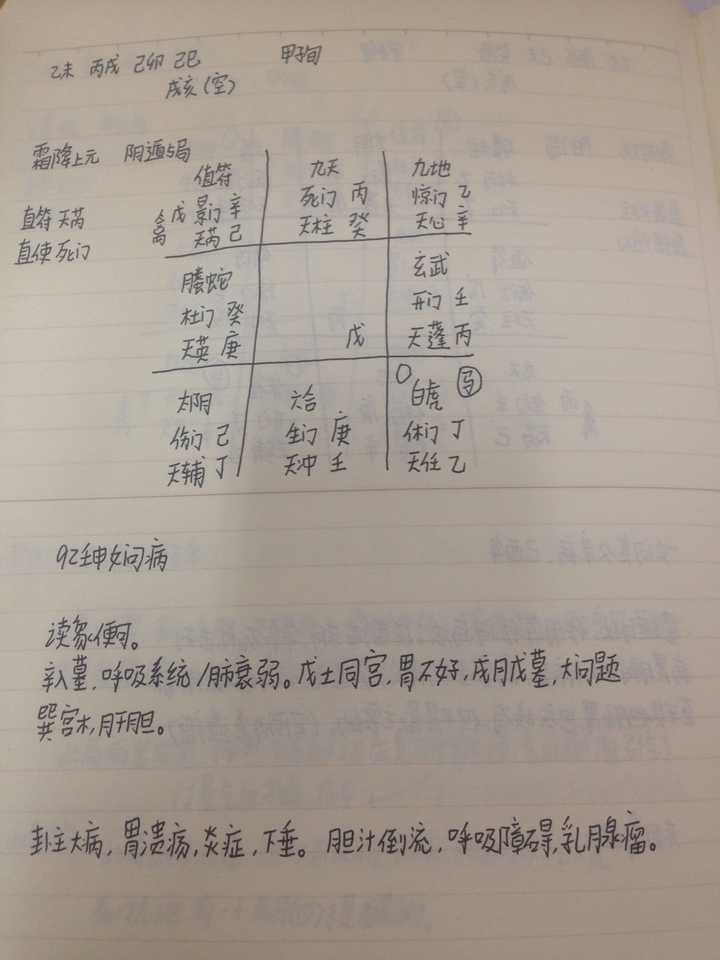 乙未 丙戌 己卯 己巳 甲子旬
戌亥(空)
霜降上元 阴遁5局
直符天芮
直使死门
值符 九天 九地
禽戊景门辛 死门 丙 惊门乙
天芮己 天柱 癸 天心辛
螣蛇 玄武
杜门癸 开门壬
天英庚 戊 天蓬丙
太阴 六合 〇白虎 马
伤门己 生门庚 休门丁
天辅丁 天冲壬 天任乙
92壬申女问病
读象便可。
辛入墓,呼吸系统/肺衰弱。戊土同宫,胃不好,戌月戊墓,大问题
巽宫木,肝胆。
卦主大病,胃溃疡,炎症,下垂。胆汁倒流,呼吸障碍,乳腺瘤。